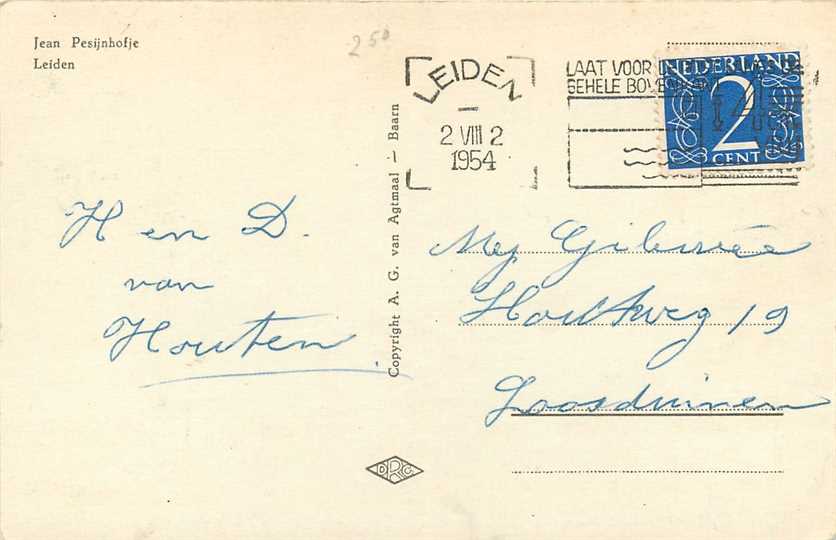 Jean Pesijnhofje
Leiden
2 50
LEIDEN
2 VIII 2
1954
LAAT VOOR
GEHELE
NEDERLAND
2
CENT
Copyright A. G. van Agtmaal — Baarn
H en D.
van
Houten
Mej
Houtweg 19
Loosduinen
DRG